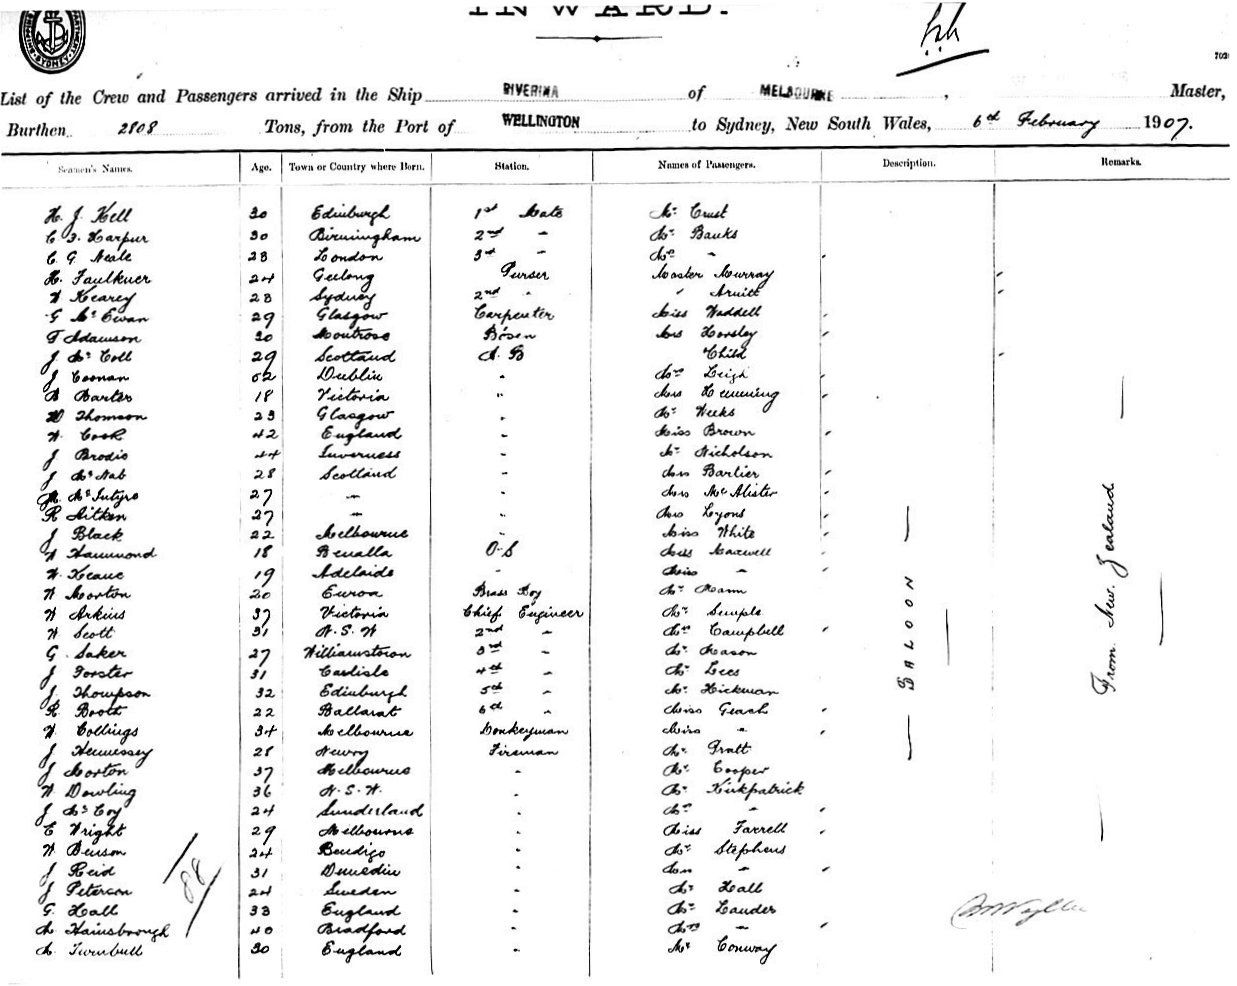 INWARD.
SYDNEY
List of the Crew and Passengers arrived in the Ship RIVERINA of MELBOURNE, Master,
Burthen 2808 Tons, from the Port of WELLINGTON to Sydney, New South Wales, 6th February 1907.
Seamen's Names. Age. Town or Country where Born. Station. Names of Passengers. Description. Remarks.
H. J. Kell 30 Edinburgh 1st Mate Mr Crust
C. F. Harpur 30 Birmingham 2nd " Mr Banks
C. G. Neale 28 London 3rd " Mrs "
H. Faulkner 24 Geelong Purser Master Murray
W Kearey 28 Sydney 2nd " "
G McEwan 29 Glasgow Carpenter Miss Waddell
T Adamson 30 Montrose Bosen Mrs Horsley
J. McColl 29 Scotland A. B Child
J Coonan 52 Dublin " Mrs Leigh
Barter 18 Victoria " Mrs Hemming
W Thomson 23 Glasgow " Mr Weeks
W. Cook 42 England " Miss Brown
J Brodie 44 Inverness " Mr Nicholson
J McNab 28 Scotland " Mrs Barlier
McIntyre 27 " " Mrs McAlister
R Aitken 27 " " Mrs Lyons
J Black 22 Melbourne " Miss White
W Hammond 18 Benalla O-S Miss Maxwell
W. Keane 19 Adelaide " Miss "
W Morton 20 Euroa Brass Boy Mr Mann
W Arkins 37 Victoria Chief Engineer Mr Semple
W Scott 31 N. S. W 2nd " Mrs Campbell
G. Saker 27 Williamstown 3rd " Mr Mason
J Forster 31 Carlisle 4th " Mr Lees
J. Thompson 32 Edinburgh 5th " Mr Hickman
R. Booth 22 Ballarat 6th " Miss Geach
W Collings 34 Melbourne Donkeyman Miss "
J Hennessey 28 Newry Fireman Mr Pratt
J Morton 37 Melbourne " Mr Cooper
W Dowling 36 N. S. W. " Mr Kirkpatrick
J McCoy 24 Sunderland " Mrs "
C Wright 29 Melbourne " Miss Farrell
W Benson 24 Bendigo " Mr Stephens
J Reid 31 Dunedin " Mrs "
J Peterson 24 Sweden " Mr Hall
G. Hall 33 England " Mr Lander
M. Hainsborough 40 Bradford " Mrs "
M. Turnbull 30 England " Mr Conway
88
SALOON
From New Zealand